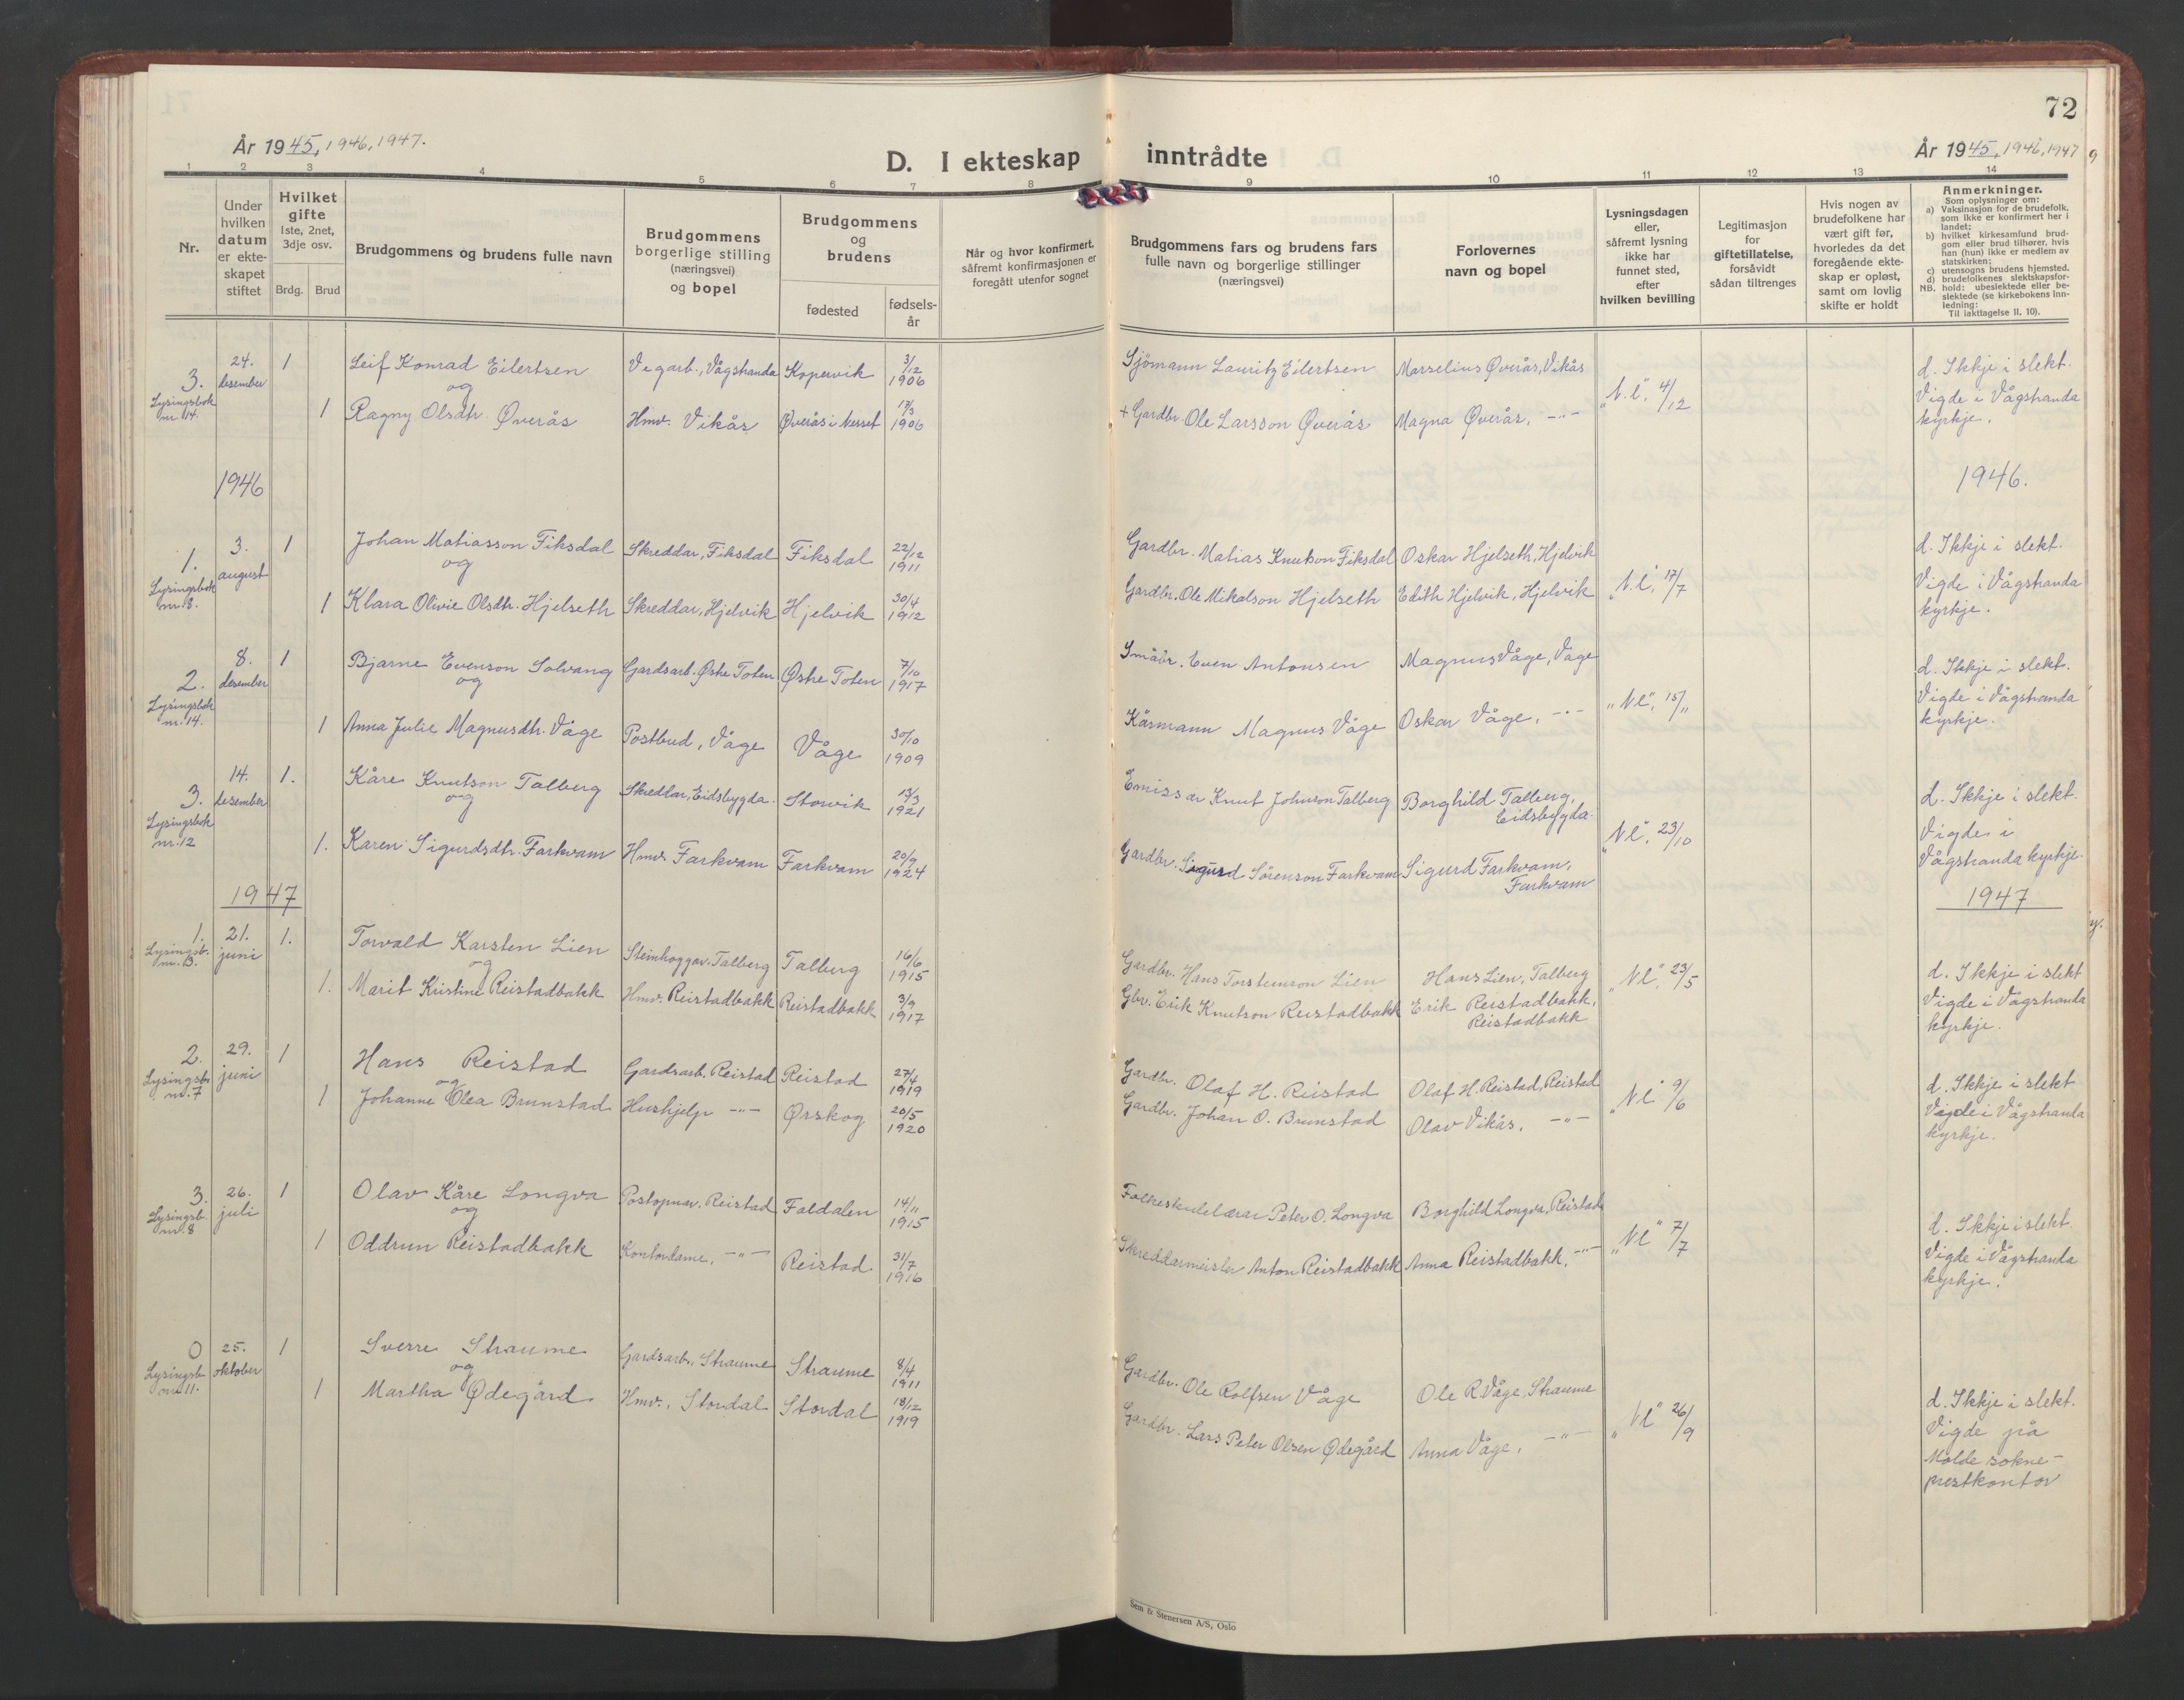 År 1945, 1946, 1947.
D. I ekteskap inntrådte
72
År 1945, 1946, 1947
1 2 3 4 5 6 7 8 9 10 11 12 13 14
Nr.
Under
hvilken
datum
er ekte-
skapet
stiftet
Hvilket
gifte
1ste, 2net,
3dje osv.
Brdg. Brud
Brudgommens og brudens fulle navn
Brudgommens
borgerlige stilling
(næringsvei)
og bopel
Brudgommens
og
brudens
fødested
fødsels-
år
Når og hvor konfirmert,
såfremt konfirmasjonen er
foregått utenfor sognet
Brudgommens fars og brudens fars
fulle navn og borgerlige stillinger
(næringsvei)
Forlovernes
navn og bopel
Lysningsdagen
eller,
såfremt lysning
ikke har
funnet sted,
efter
hvilken bevilling
Legitimasjon
for
giftetillatelse,
forsåvidt
sådan tiltrenges
Hvis nogen av
brudefolkene har
vært gift før,
hvorledes da det
foregående ekte-
skap er opløst,
samt om lovlig
skifte er holdt
Anmerkninger.
Som oplysninger om:
a) Vaksinasjon for de brudefolk.
som ikke er konfirmert her i
landet;
b) hvilket kirkesamfund brud-
gom eller brud tilhører, hvis
han (hun) ikke er medlem av
statskirken;
c) utensogns brudens hjemsted.
d) brudefolkenes slektskapsfor-
NB. hold: ubeslektede eller be-
slektede (se kirkebokens inn-
ledning:
Til iakttagelse II. 10).
3. 24. desember 1 Leif Konrad Eilertsen Vegarb., Vågstranda Kopervik 3/12 1906 Sjömann Lauritz Eilertsen Marselius Øverås, Vikås
og
Lysingsbok nr. 14. 1 Ragny Olsdtr. Øverås Hmv. Vikås Øverås i Nesset 17/3 1906 + Gardbr. Ole Larsson Øverås Magna Øverås, -"- "N.l." 4/12
d. Ikkje i slekt.
Vigde i Vågstranda
kyrkje.
1946
1946.
1. 3. august 1 Johan Matiasson Fiksdal Skreddar, Fiksdal Fiksdal 22/12 1911 Gardbr. Matias Knutson Fiksdal Oskar Hjelseth, Hjelvik
og
Lysingsbok nr. 8. 1 Klara Olivie Olsdtr. Hjelseth Skreddar, Hjelvik Hjelvik 30/4 1912 Gardbr. Ole Mikalson Hjelseth Edith Hjelvik, Hjelvik "N.l." 17/7
d. Ikkje i slekt.
Vigde i Vågstranda
kyrkje.
2. 8. desember 1 Bjarne Evenson Solvang Gardsarb. Østre Toten Østre Toten 7/10 1917 Småbr. Even Antonsen Magnus Våge, Våge
og
Lysingsbok nr. 14. 1 Anna Julie Magnusdtr. Våge Postbud, Våge Våge 30/10 1909 Kårmann Magnus Våge Oskar Våge, -"- "Nl." 15/11
d. Ikkje i slekt.
Vigde i Vågstranda
kyrkje.
3. 14. desember 1. Kåre Knutson Talberg Skreddar, Eidsbygda. Storvik 13/3 1921 Emissær Knut Johnson Talberg Borghild Talberg, Eidsbygda.
og
Lysingsbok nr. 12 1. Karen Sigurdsdtr. Farkvam Hmv. Farkvam Farkvam 20/9 1924 Gardbr. Sigurd Sörenson Farkvam Sigurd Farkvam, Farkvam "Nl." 23/10
d. Ikkje i slekt.
Vigde i
Vågstranda kyrkje.
1947
1947
1. 21. juni 1. Torvald Karsten Lien Steinhoggar. Talberg Talberg 16/6 1915 Gardbr. Hans Torsteinson Lien Hans Lien, Talberg
og
Lysingsb. nr. 3. 1. Marit Kristine Reistadbakk Hmv. Reistadbakk Reistadbakk 3/9 1917 Gbr. Erik Knutson Reistadbakk Erik Reistadbakk, Reistadbakk "Nl." 23/5
d. Ikkje i slekt
Vigde i Vågstranda
kyrkje.
2. 29. juni 1 Hans Reistad Gardsarb. Reistad Reistad 27/4 1919 Gardbr. Olaf H. Reistad Olaf H. Reistad, Reistad
og
Lysingsb. nr. 7 1 Johanne Olea Brunstad Hushjelp -"- Ørskog 20/5 1920 Gardbr. Johan O. Brunstad Olav Vikås, -"- "Nl" 9/6
d. Ikkje i slekt
Vigde i Vågstranda
kyrkje.
3. 26. juli 1 Olav Kåre Longva Postopnar. Reistad Foldalen 14/11 1915 Folkeskulelærar Peter O. Longva Borghild Longva, Reistad
og
Lysingsb. nr. 8 1 Oddrun Reistadbakk Kontordame, -"- Reistad 31/7 1916 Skreddarmeister Anton Reistadbakk Anna Reistadbakk, -"- "Nl" 7/7
d. Ikkje i slekt.
Vigde i Vågstranda
kyrkje.
0 25. oktober 1 Sverre Straume Gardsarb., Straume Straume 8/4 1911 Gardbr. Ole Rolfsen Våge Ole R. Våge, Straume
og
Lysingsb. nr. 11. 1 Martha Ødegård Hmv., Stordal Stordal 18/12 1919 Gardbr. Lars Peter Olsen Ødegård Anna Våge, -"- "Nl" 26/9
d. Ikkje i slekt.
Vigde på
Molde sokne-
prestkontor
Sem & Stenersen A/S, Oslo